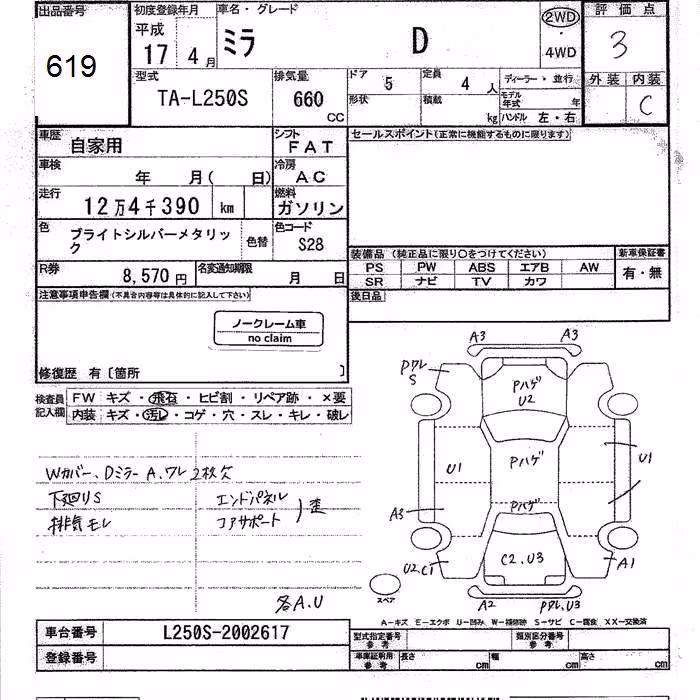 出品番号
619
初度登録年月
平成
17年 4月
車名・グレード
ミラ D
2WD
・
4WD
評価点
3
型式
TA-L250S
排気量
660 CC
ドア 5
定員 4 人
形状
積載 kg
ディーラー・並行
モデル年式 年
ハンドル 左・右
外装
内装
C
車歴 自家用
シフト FAT
車検 年 月( 日)
冷房 AC
走行 12万4千390 km
燃料 ガソリン
色 ブライトシルバーメタリック
色替
色コード S28
R券 8,570円
名変通知期限 月 日
セールスポイント(正常に機能するものに限ります)
装備品 (純正品に限り○をつけてください)
新車保証書
PS PW ABS エアB AW
SR ナビ TV カワ
有・無
後日品
注意事項申告欄(不具合内容等は具体的に記入して下さい)
ノークレーム車
no claim
修復歴 有〔箇所 〕
検査員記入欄
FW キズ・飛石・ヒビ割・リペア跡・×要
内装 キズ・汚れ・コゲ・穴・スレ・キレ・破レ
Wカバー、DミラーA、ワレ 2枚欠
下廻りS
排気モレ
エンドパネル
コアサポート
歪
各A.U
A3 A3
Pワレ
S
Pハゲ
U2
U1
Pハゲ
U1
Pハゲ
A3
C2.U3
U2.C1
A1
スペア
A2
Pワレ.U3
A-キズ E-エクボ U-凹み W-補修跡 S-サビ C-腐食 XX-交換済
車台番号 L250S-2002617
登録番号
型式指定番号 参考
類別区分番号 参考
車庫証明用 参考
長さ cm
幅 cm
高さ cm